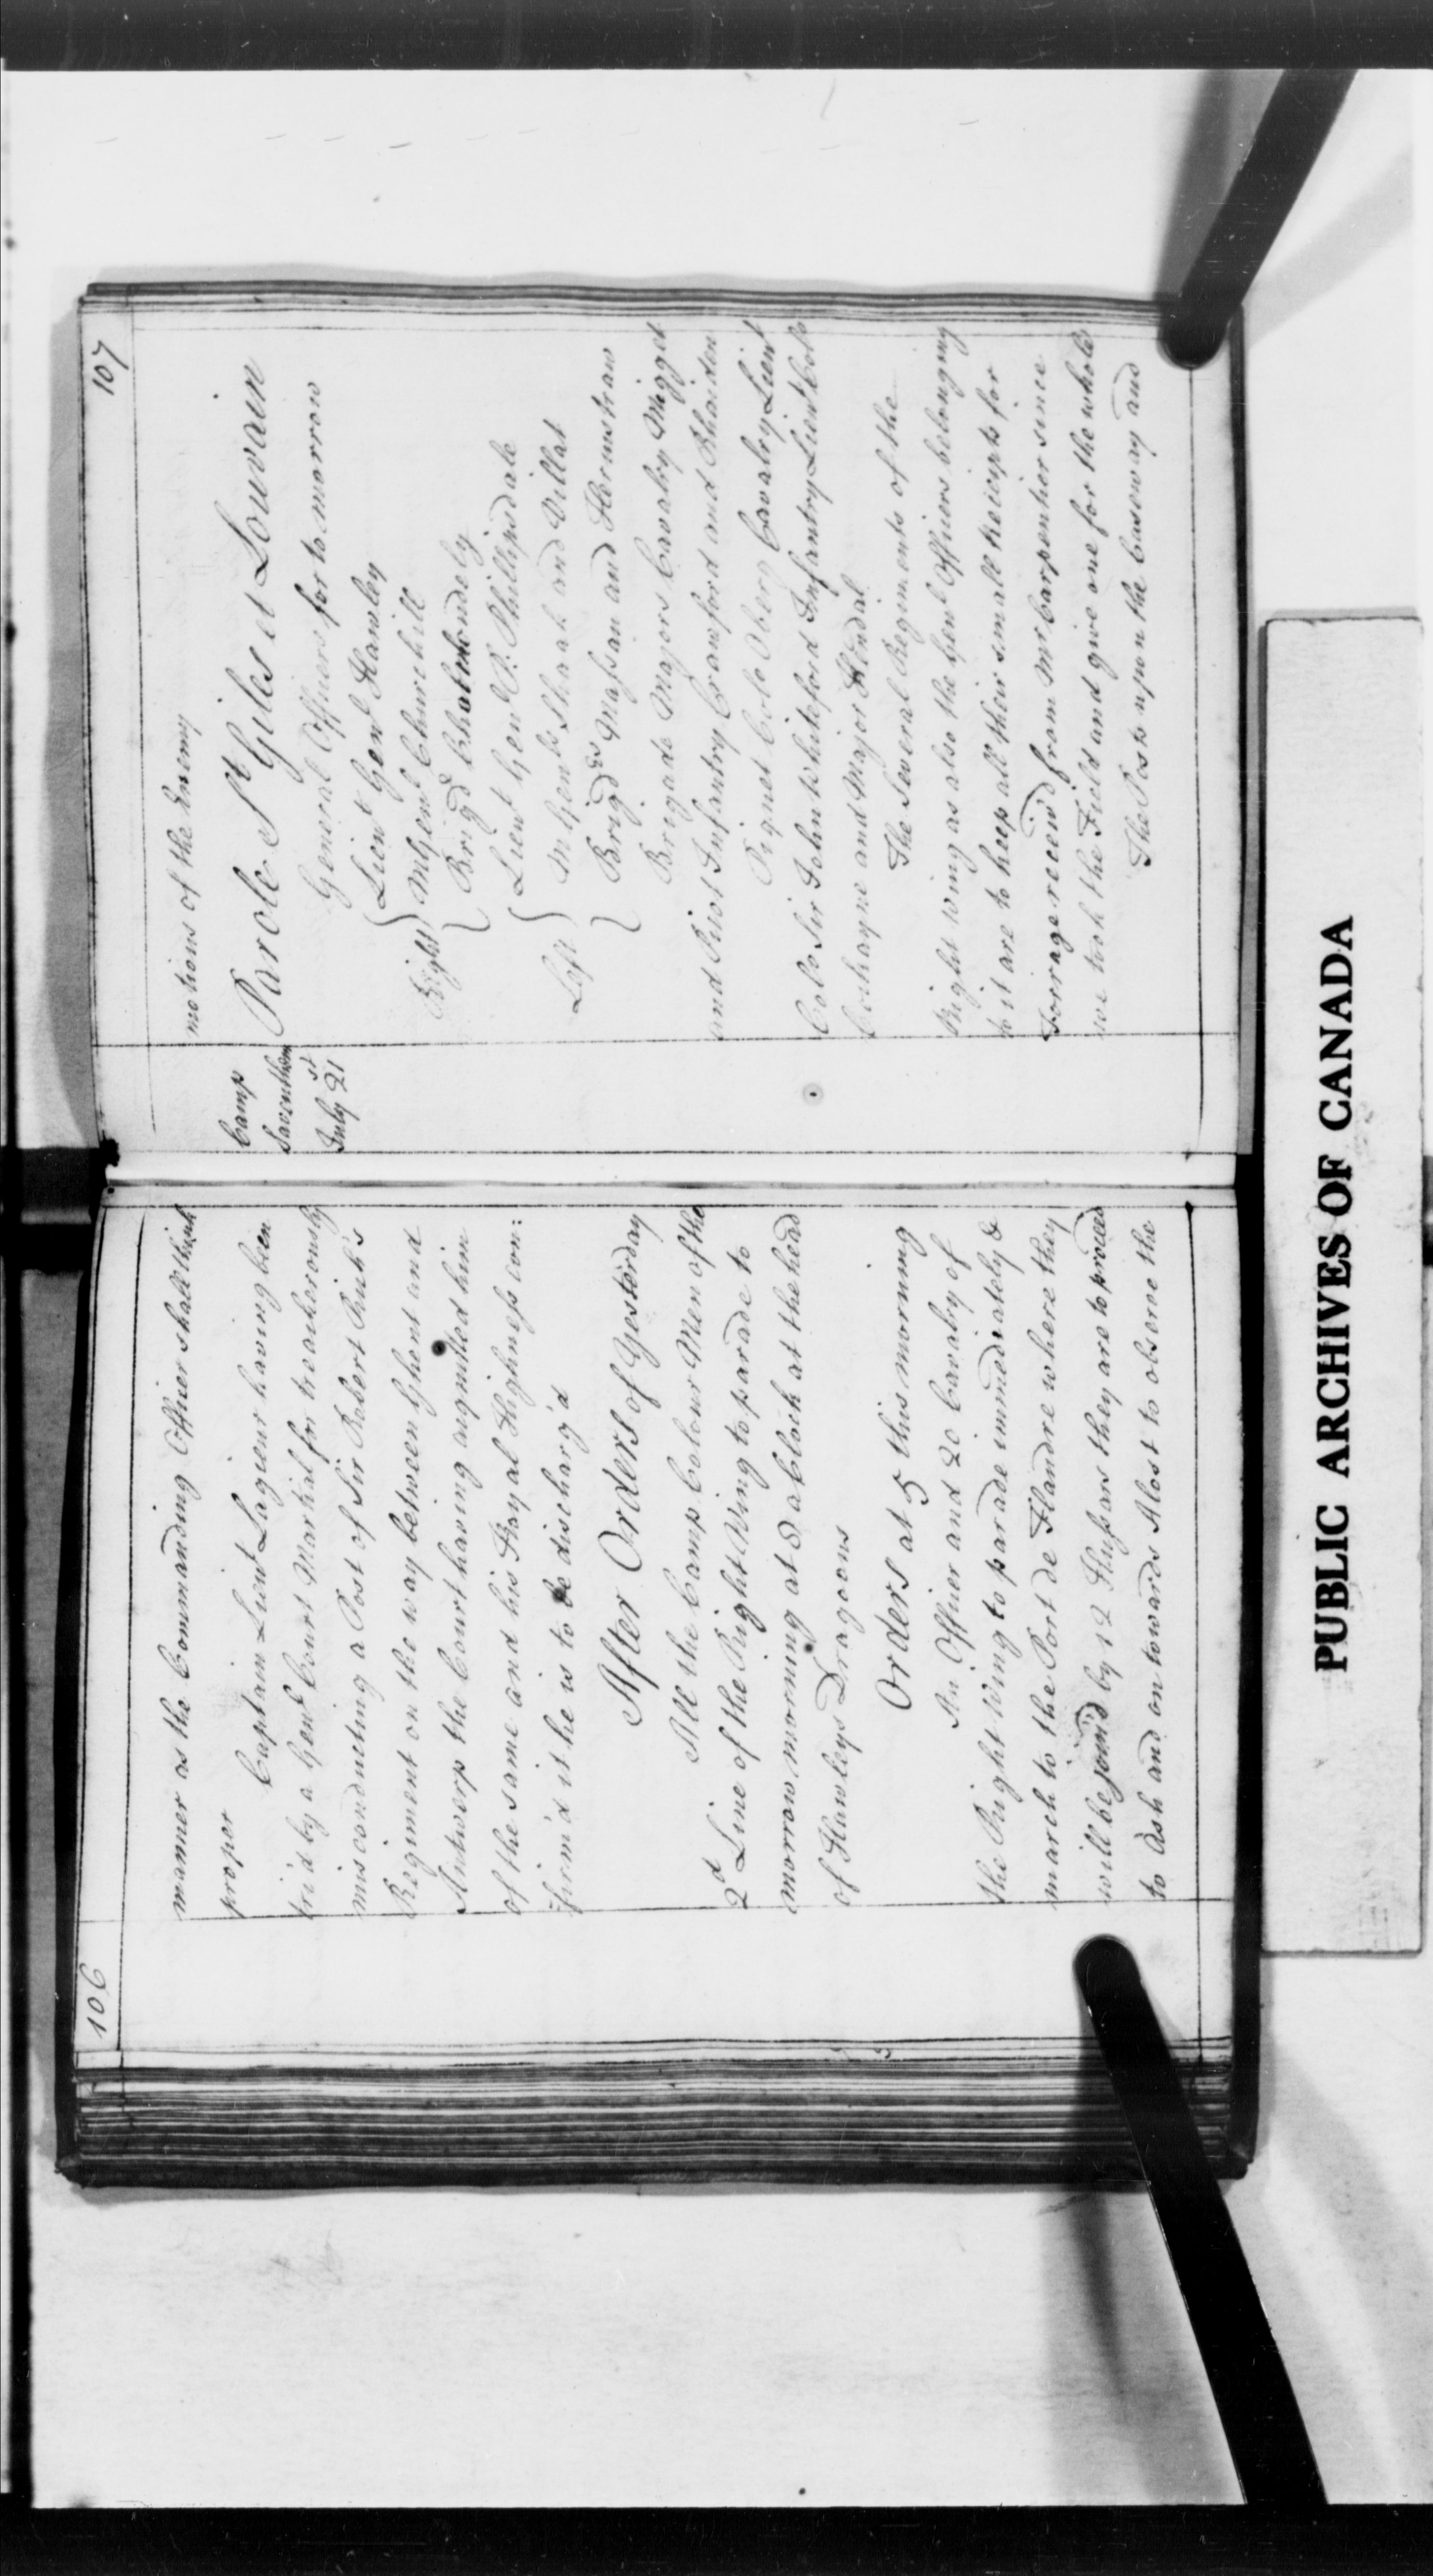 106
manner as the Commanding Officer shall think
proper
Captain Lieut Lagieur having been
tri'd by a Genl Court Martial for treacherously
misconducting a Post of Sir Robert Rich's
Regiment on the way between Ghent and
Antwerp the Court having acquitted him
of the same and his Royal Highness con:
firm'd it he is to be discharg'd
After Orders of Yesterday
All the Camp Colour Men of the
2d Line of the Right Wing to parade to
morrow morning at 8 a Clock at the head
of Hawleys Dragoons
Orders at 5 this morning
An Officer and 20 Cavalry of
the Right Wing to parade immediately &
march to the Port de Flandre where they
will be join'd by 12 Hussars they are to proceed
to Ash and on towards Alost to observe the
107
motions of the Enemy
Camp
July 21st
Parole St Giles et Louvain
General Officers for to morrow
Right
Lieut Genl Hawley
M Genl Churchill
Brigd
Left
Lieut Genl P. Phillipsdale
M Genls Shaak and Villat
Brigds Massan and Hermstraw
Brigade Majors Cavalry Migget
and Pivot Infantry Crawford and Bhaiden
Piquet Colo Oberg Cavalry Lieut
Colo Sir John Whiteford Infantry Lieut Colo
Cockayne and Major Hendal
The Several Regiments of the
Right Wing as also the Genl Officers belonging
to it are to keep all their small Reciepts for
Forrage receiv'd from Mr Carpentier since
we took the Field and give one for the whole
The Posts upon the Caseway and
PUBLIC ARCHIVES OF CANADA